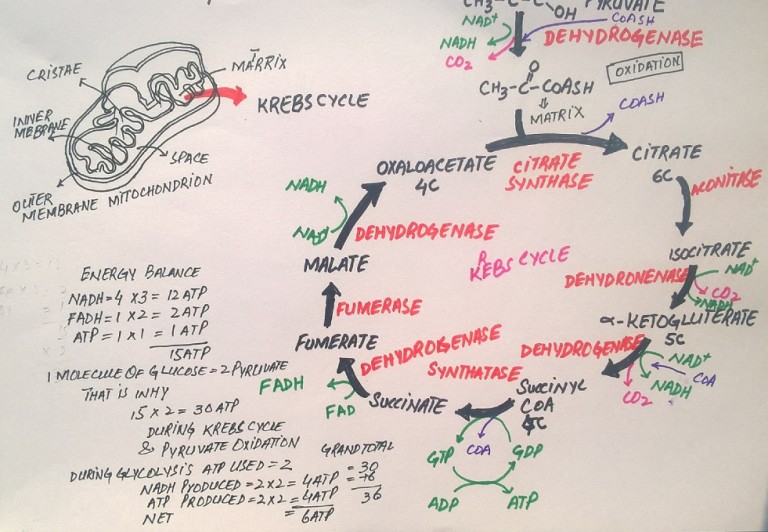 CH3-C-C-OH PYRUVATE
NAD+
COASH
NADH
DEHYDROGENASE
CO2
O
OXIDATION
CH3-C-COASH
MATRIX
COASH
CRISTAE
MATRIX
KREBS CYCLE
INNER
MEBRANE
SPACE
OUTER
MEMBRANE MITOCHONDRION
OXALOACETATE
4C
CITRATE
SYNTHASE
CITRATE
6C
ACONITASE
NADH
NAD+
DEHYDROGENASE
MALATE
KREBS CYCLE
ISOCITRATE
DEHYDRONENASE
NAD+
CO2
NADH
α-KETOGLUTERATE
5C
DEHYDROGENASE
NAD+
COA
NADH
CO2
FUMERASE
FUMERATE
DEHYDROGENASE
SYNTHATASE
FADH
FAD
SUCCINATE
SUCCINYL
COA
4C
GTP
COA
GDP
ADP
ATP
ENERGY BALANCE
NADH=4 X3 = 12 ATP
FADH=1 X2 = 2ATP
ATP = 1 X1 = 1ATP
15ATP
1 MOLECULE OF GLUCOSE = 2 PYRUVATE
THAT IS WHY
15 X2 = 30 ATP
DURING KREBS CYCLE
& PYRUVATE OXIDATION
DURING GLYCOLYSIS ATP USED = 2
NADH PYODUCED = 2X2 = 4ATP
ATP PRODUCED = 2X2 = 4ATP
NET = 6ATP
GRAND TOTAL
= 30
+6
36